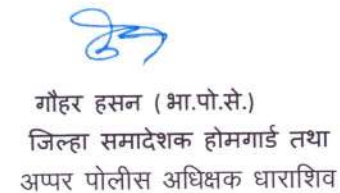 गौहर हसन (भा.पो.से.)
जिल्हा समादेशक होमगार्ड तथा
अप्पर पोलीस अधिक्षक धाराशिव